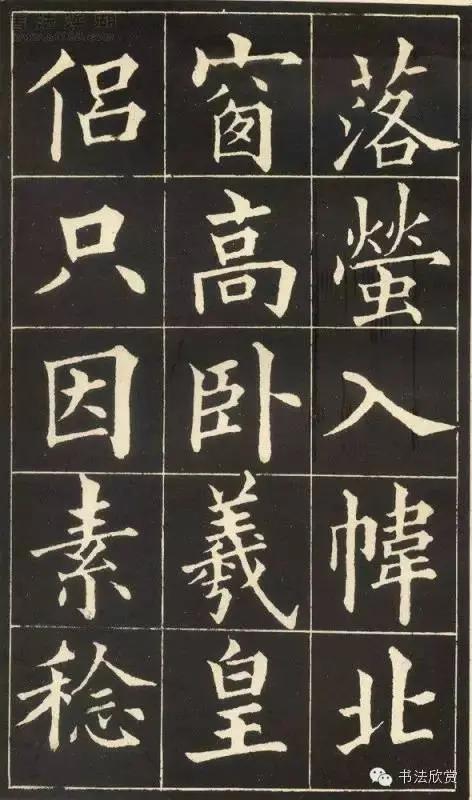 落螢入幃北
窗高卧羲皇
侣只因素稔
书法欣赏